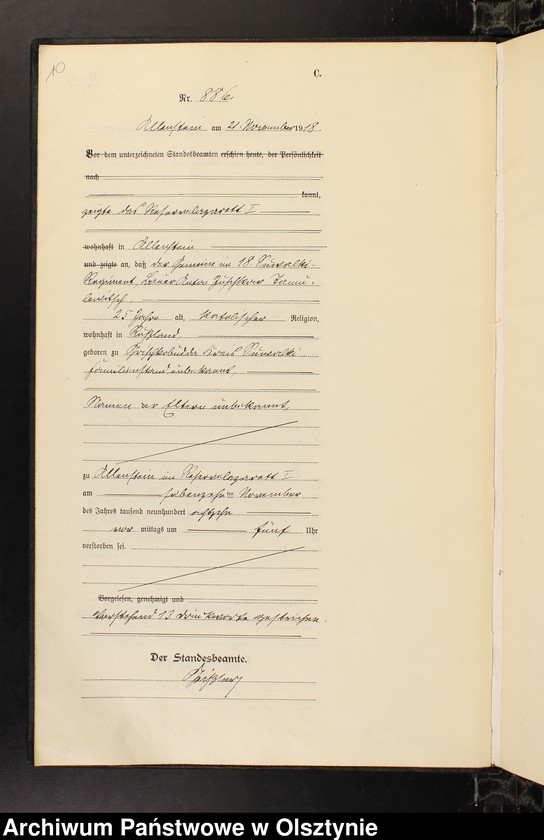 10
C.
Nr. 886
Allenstein am 21. November 1918.
Vor dem unterzeichneten Standesbeamten erschien heute, der Persönlichkeit
nach
kannt,
zeigte das Reservelazarett I
wohnhaft in Allenstein
und zeigte an, daß der Gemeine im 18
Regiment,
25 Jahre alt, katolischer Religion,
wohnhaft in Rußland,
geboren zu Kreis Suwalki,
Familienstand unbekannt,
Namen der Eltern unbekannt,
zu Allenstein im Reservelazarett I
am siebenzehnten November
des Jahres tausend neunhundert achtzehn
vor mittags um fünf Uhr
verstorben sei.
Vorgelesen, genehmigt und
Vorstehend 13 Druckworte gestrichen.
Der Standesbeamte.
Archiwum Państwowe w Olsztynie